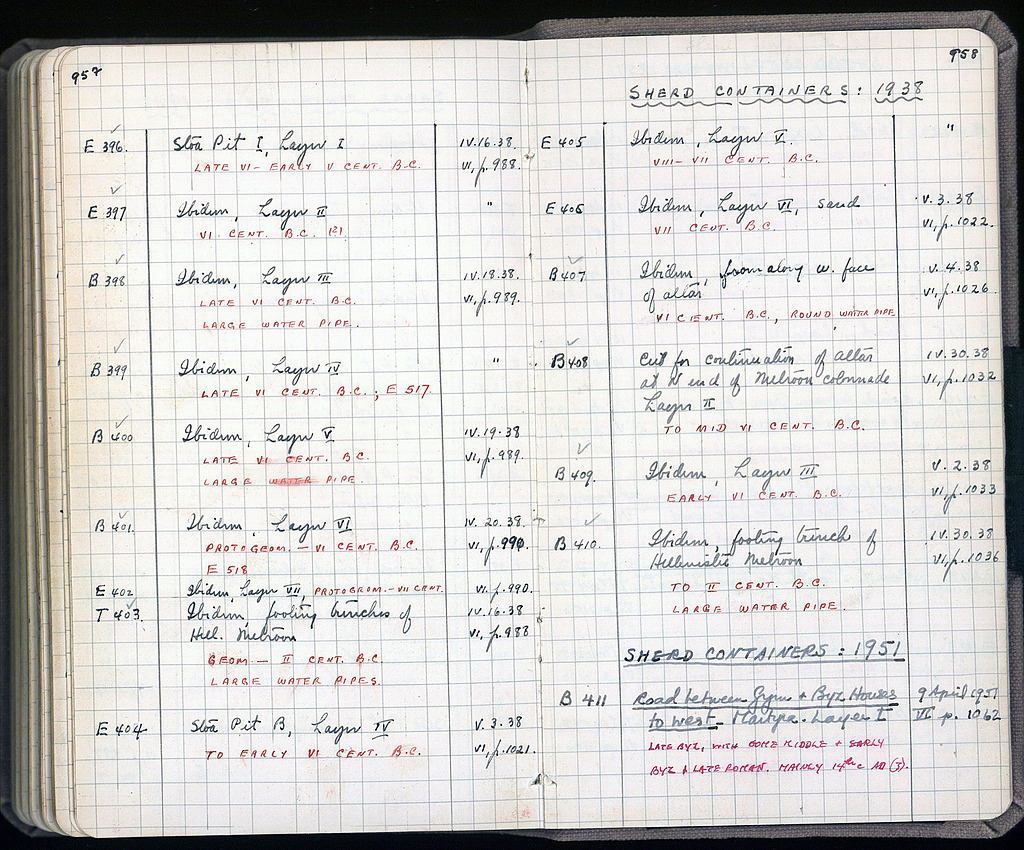 957
E 396. Stoa Pit I, Layer I IV.16.38.
LATE VI - EARLY V CENT. B.C. VI, p.988.
E 397 Ibidem, Layer II "
VI CENT. B.C. (?)
B 398 Ibidem, Layer III IV.18.38.
LATE VI CENT. B.C. VI, p.989.
LARGE WATER PIPE.
B 399 Ibidem, Layer IV "
LATE VI CENT. B.C.; E 517.
B 400 Ibidem, Layer V IV.19.38
LATE VI CENT. B.C. VI, p.989.
LARGE WATER PIPE.
B 401. Ibidem, Layer VI IV. 20.38.
PROTOGEOM. - VI CENT. B.C. VI, p.990.
E 518
E 402 Ibidem, Layer VII, PROTOGEOM. - VII CENT. VI. p.990.
T 403. Ibidem, footing trenches of IV.16.38
Hell. Metroon VI, p.988
GEOM. - II CENT. B.C.
LARGE WATER PIPES.
E 404 Stoa Pit B, Layer IV V. 3.38
TO EARLY VI CENT. B.C. VI, p.1021.
958
SHERD CONTAINERS: 1938
E 405 Ibidem, Layer V. "
VIII - VII CENT. B.C.
E 406 Ibidem, Layer VI, sand V. 3. 38
VII CENT. B.C. VI, p.1022.
B 407 Ibidem, from along w. face V. 4.38
of altar VI, p.1026.
VI CENT. B.C., ROUND WATER PIPE
B 408 Cut for continuation of altar IV.30.38
at W end of Metroon colonnade VI, p.1032
Layer II
TO MID VI CENT. B.C.
B 409. Ibidem, Layer III V. 2.38
EARLY VI CENT. B.C. VI, p.1033
B 410. Ibidem, footing trench of IV.30.38
Hellenistic Metroon VI, p.1036
TO II CENT. B.C.
LARGE WATER PIPE.
SHERD CONTAINERS: 1951
B 411 Road between Gym + Byz Houses 9 April 1951
to west - Martyra. Layer I VI p. 1062
LATE BYZ, WITH SOME MIDDLE + EARLY
BYZ & LATE ROMAN. MAINLY 14th c AD (?).